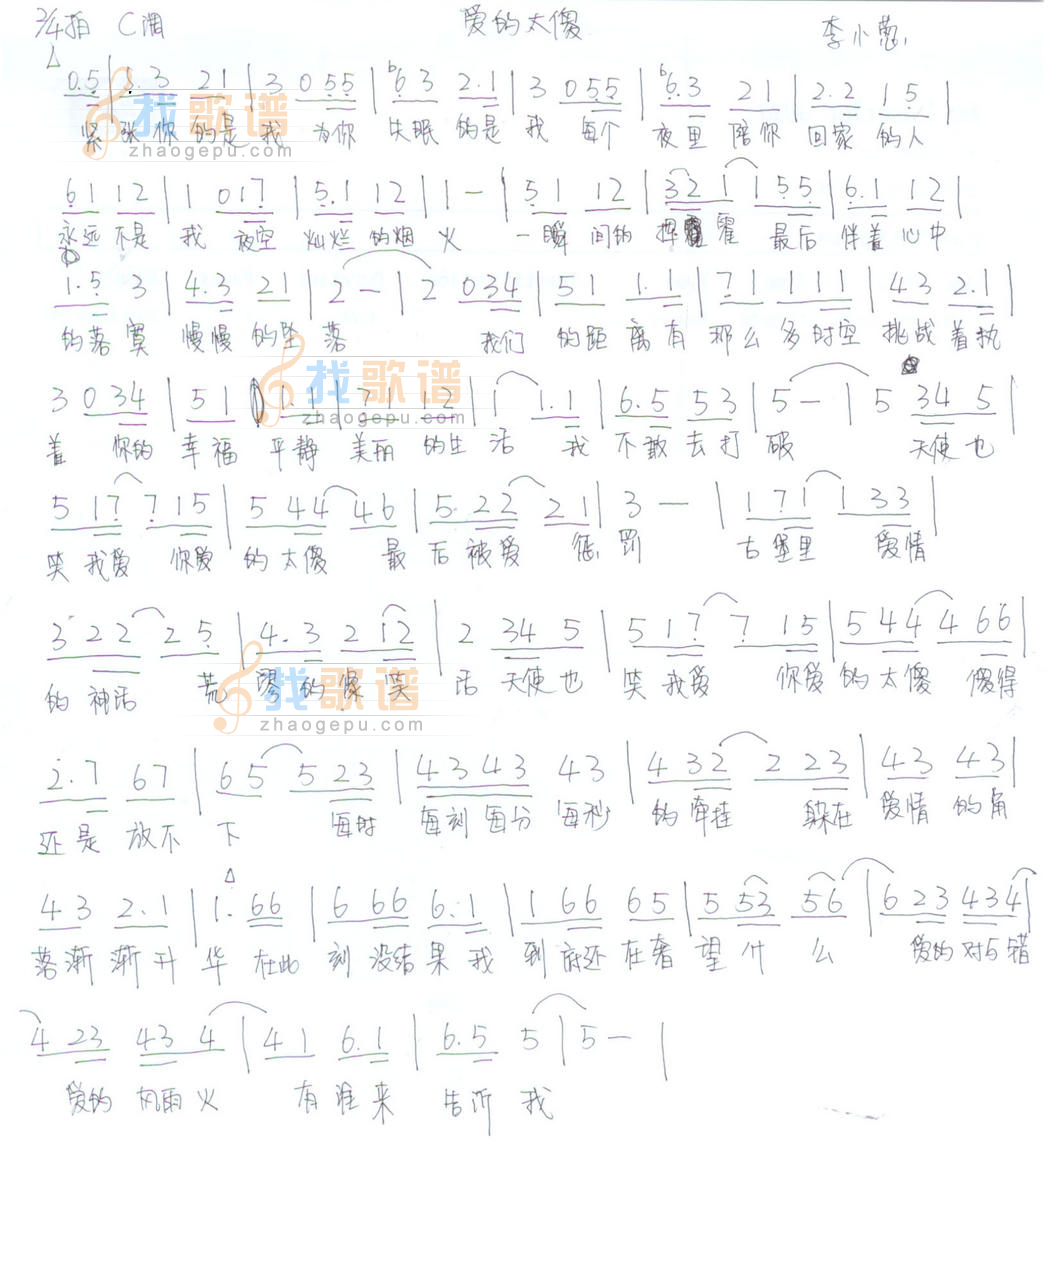 2/4拍 C调 爱的太傻 李小葱
0.5 | 3.3 21 | 3 055 | b6.3 2.1 | 3 055 | b6.3 21 | 2.2 15 |
紧张你的是我 为你 失眠的是我 每个 夜里陪你回家的人
找歌谱
zhaogepu.com
61 12 | 1 017 | 5.1 12 | 1 - | 51 12 | 321 155 | 6.1 12 |
永远不是 我 夜空 灿烂的烟火 一瞬间的挥霍 最后伴着心中
1.5 3 | 4.3 21 | 2 - | 2 034 | 51 1.1 | 71 111 | 43 2.1 |
的落寞 慢慢的坠落 我们 的距离有那么多时空 挑战着执
3 034 | 51 1.1 | 71 12 | 1 1.1 | 6.5 53 | 5 - | 5 345 |
着 你的 幸福 平静 美丽 的生活 我 不敢去打破 天使也
找歌谱
zhaogepu.com
517 715 | 544 46 | 522 21 | 3 - | 171 133 |
笑我爱 你爱的太傻 最后被爱 惩罚 古堡里 爱情
322 25 | 4.3 212 | 2 345 | 517 715 | 544 466 |
的神话 荒谬的像笑话 天使也 笑我爱 你爱的太傻 傻得
找歌谱
zhaogepu.com
2.7 67 | 65 523 | 4343 43 | 432 223 | 43 43 |
还是放不下 每时 每刻每分每秒 的牵挂 躲在爱情的角
43 2.1 | 1.66 | 666 6.1 | 166 65 | 553 56 | 623 434 |
落渐渐升华 在此 刻没结果我到底还在奢望什么 爱的对与错
423 434 | 41 6.1 | 6.5 5 | 5 - |
爱的风雨火 有谁来告诉我